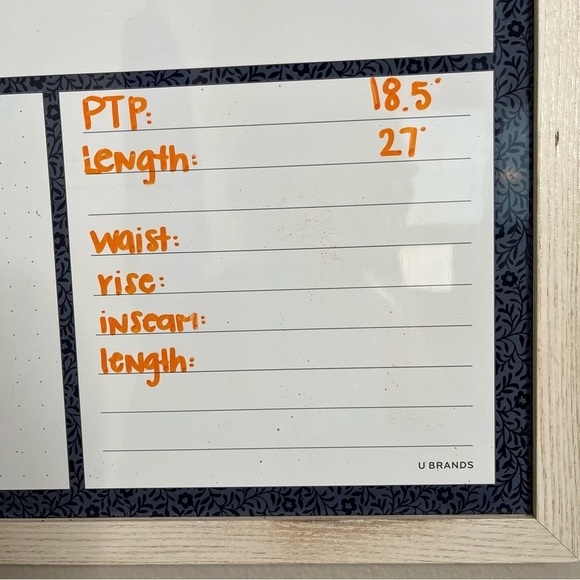 PTP: 18.5"
Length: 27"
waist:
rise:
inseam:
length:
U BRANDS